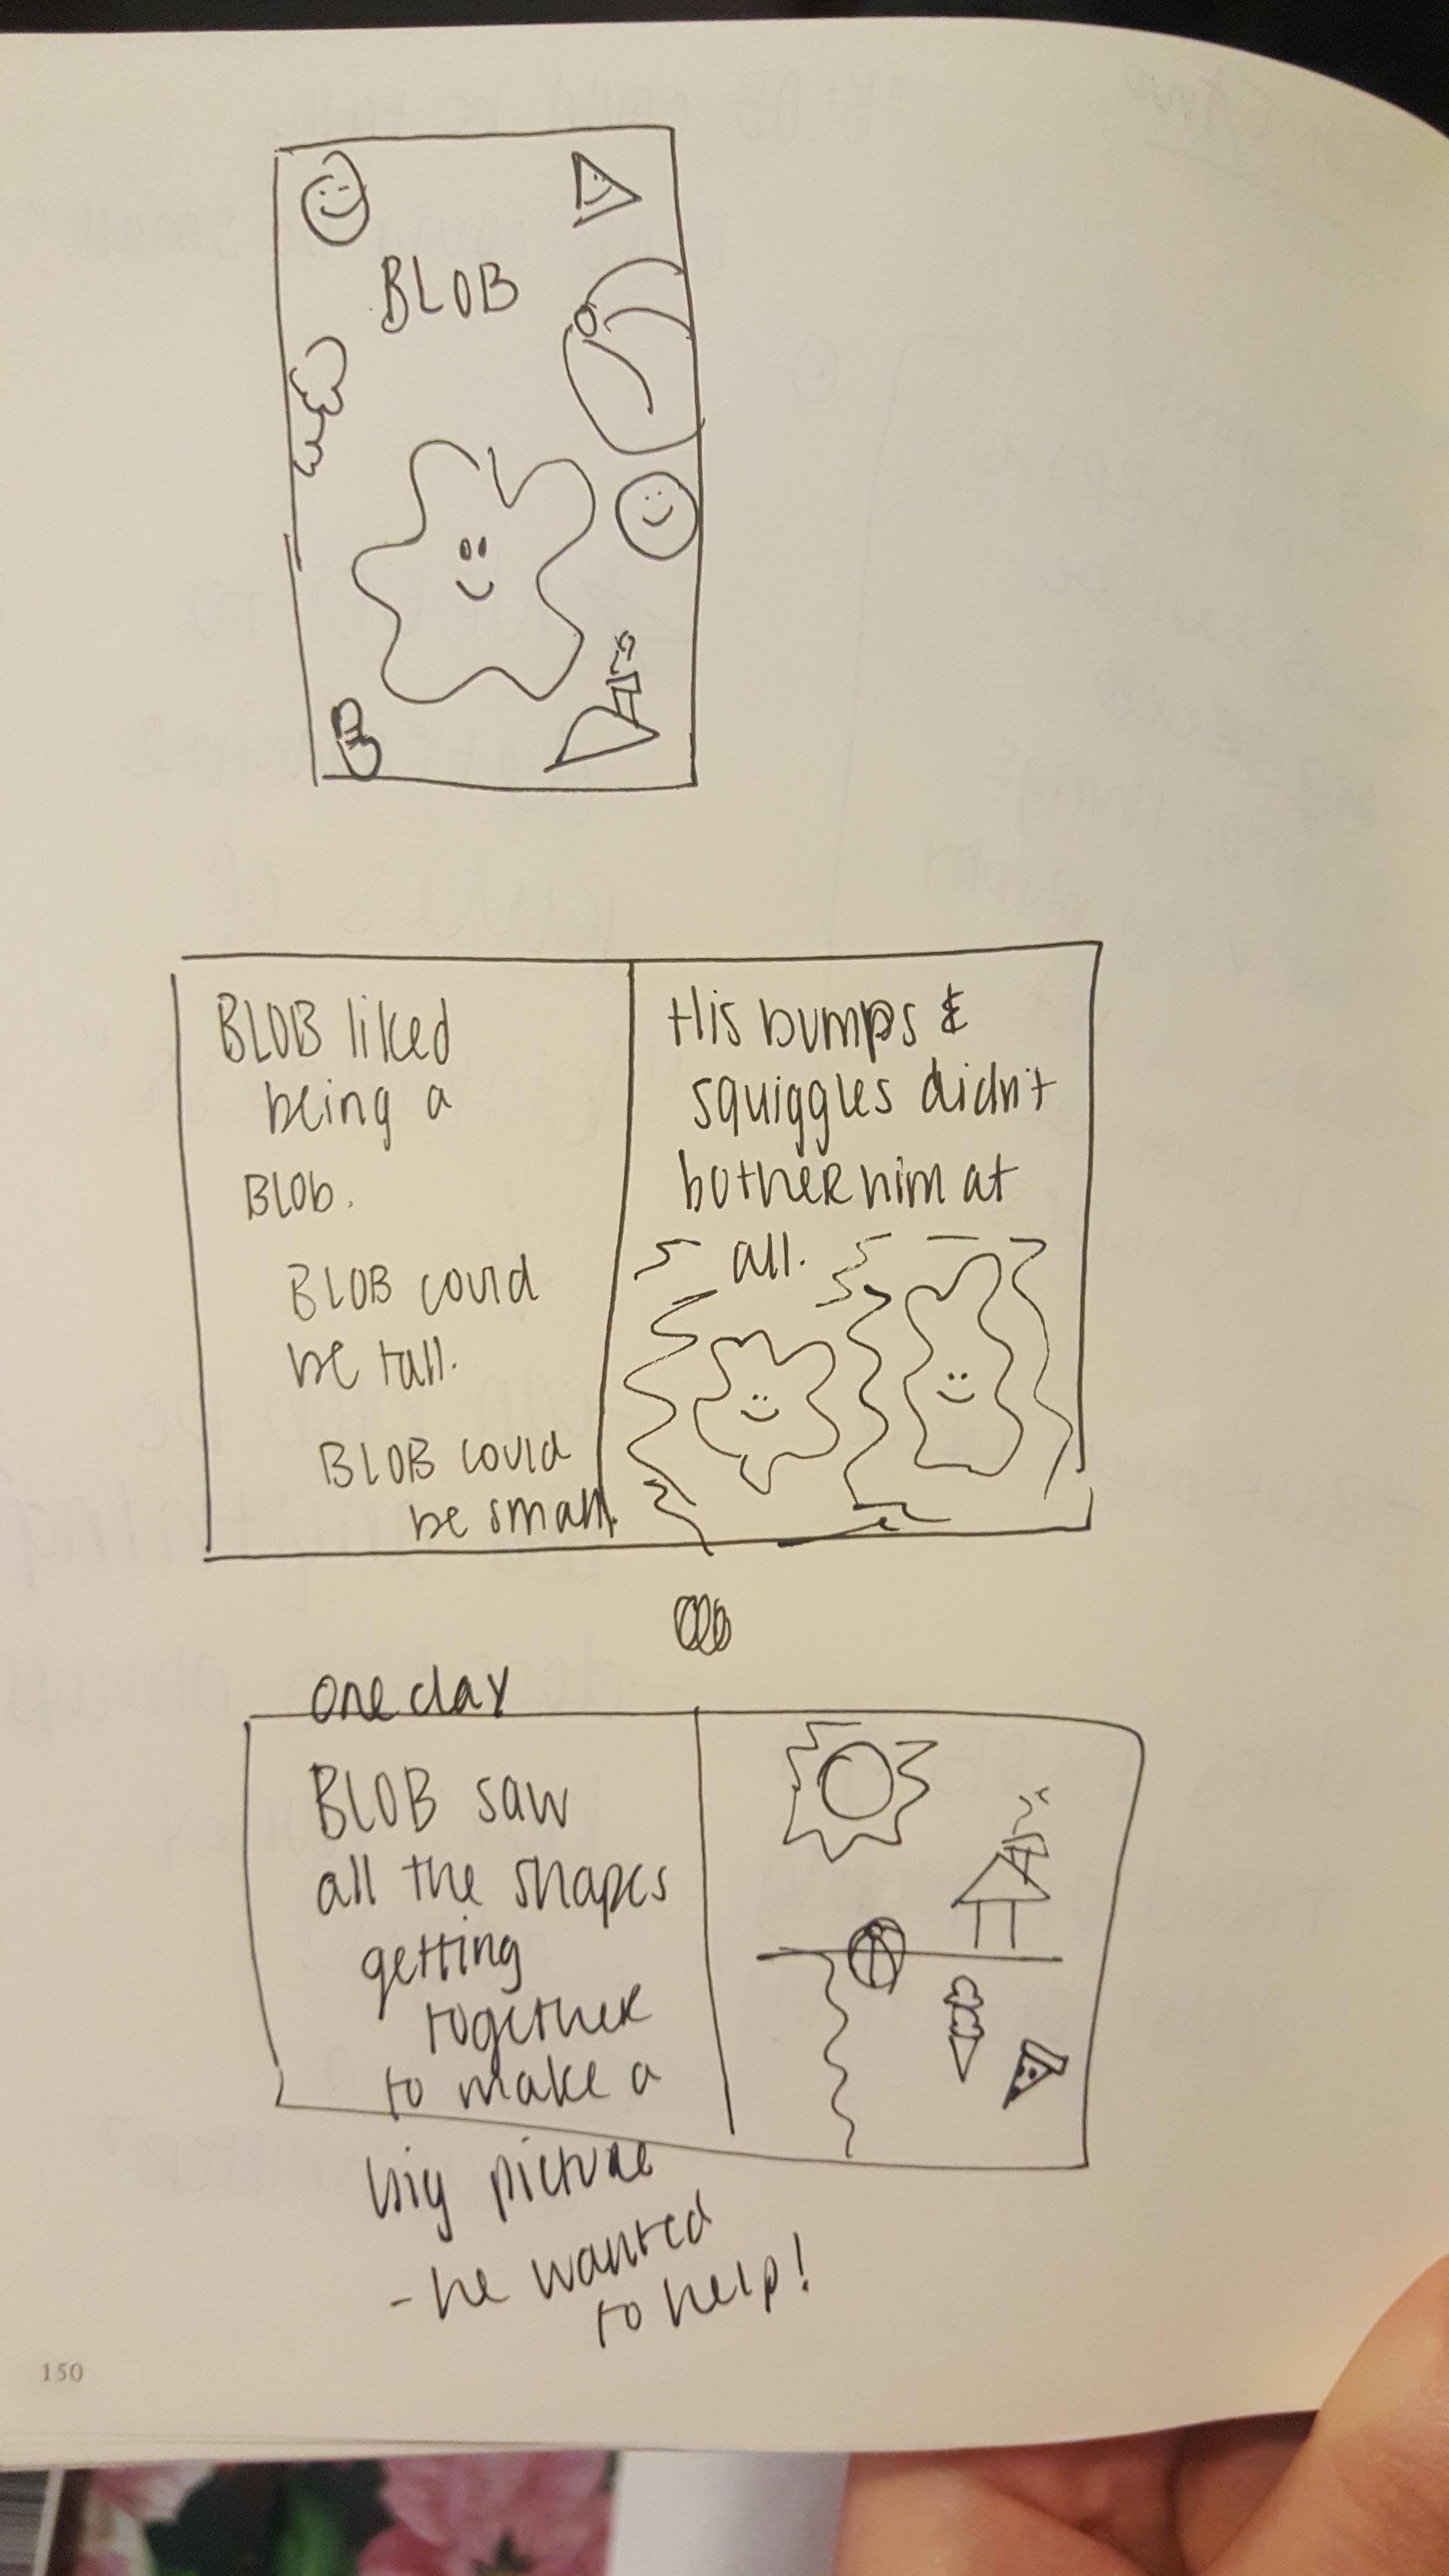 BLOB
BLOB liked
being a
BLOb.
BLOB could
be tall.
BLOB could
be small.
His bumps &
squiggles didn't
bother him at
all.
one day
BLOB saw
all the shapes
getting
together
to make a
big picture
- he wanted
to help!
150